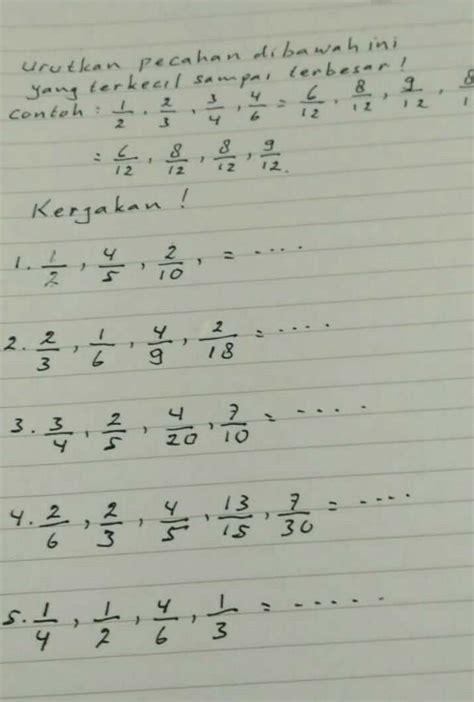 urutkan pecahan dibawah ini
yang terkecil sampai terbesar!
contoh : 1/2, 2/3, 3/4, 4/6 = 6/12, 8/12, 9/12, 8/1
= 6/12, 8/12, 8/12, 9/12.
Kerjakan !
1. 1/2, 4/5, 2/10, = ....
2. 2/3, 1/6, 4/9, 2/18 = ....
3. 3/4, 2/5, 4/20, 7/10 = ....
4. 2/6, 2/3, 4/5, 13/15, 7/30 = ....
5. 1/4, 1/2, 4/6, 1/3 = .....